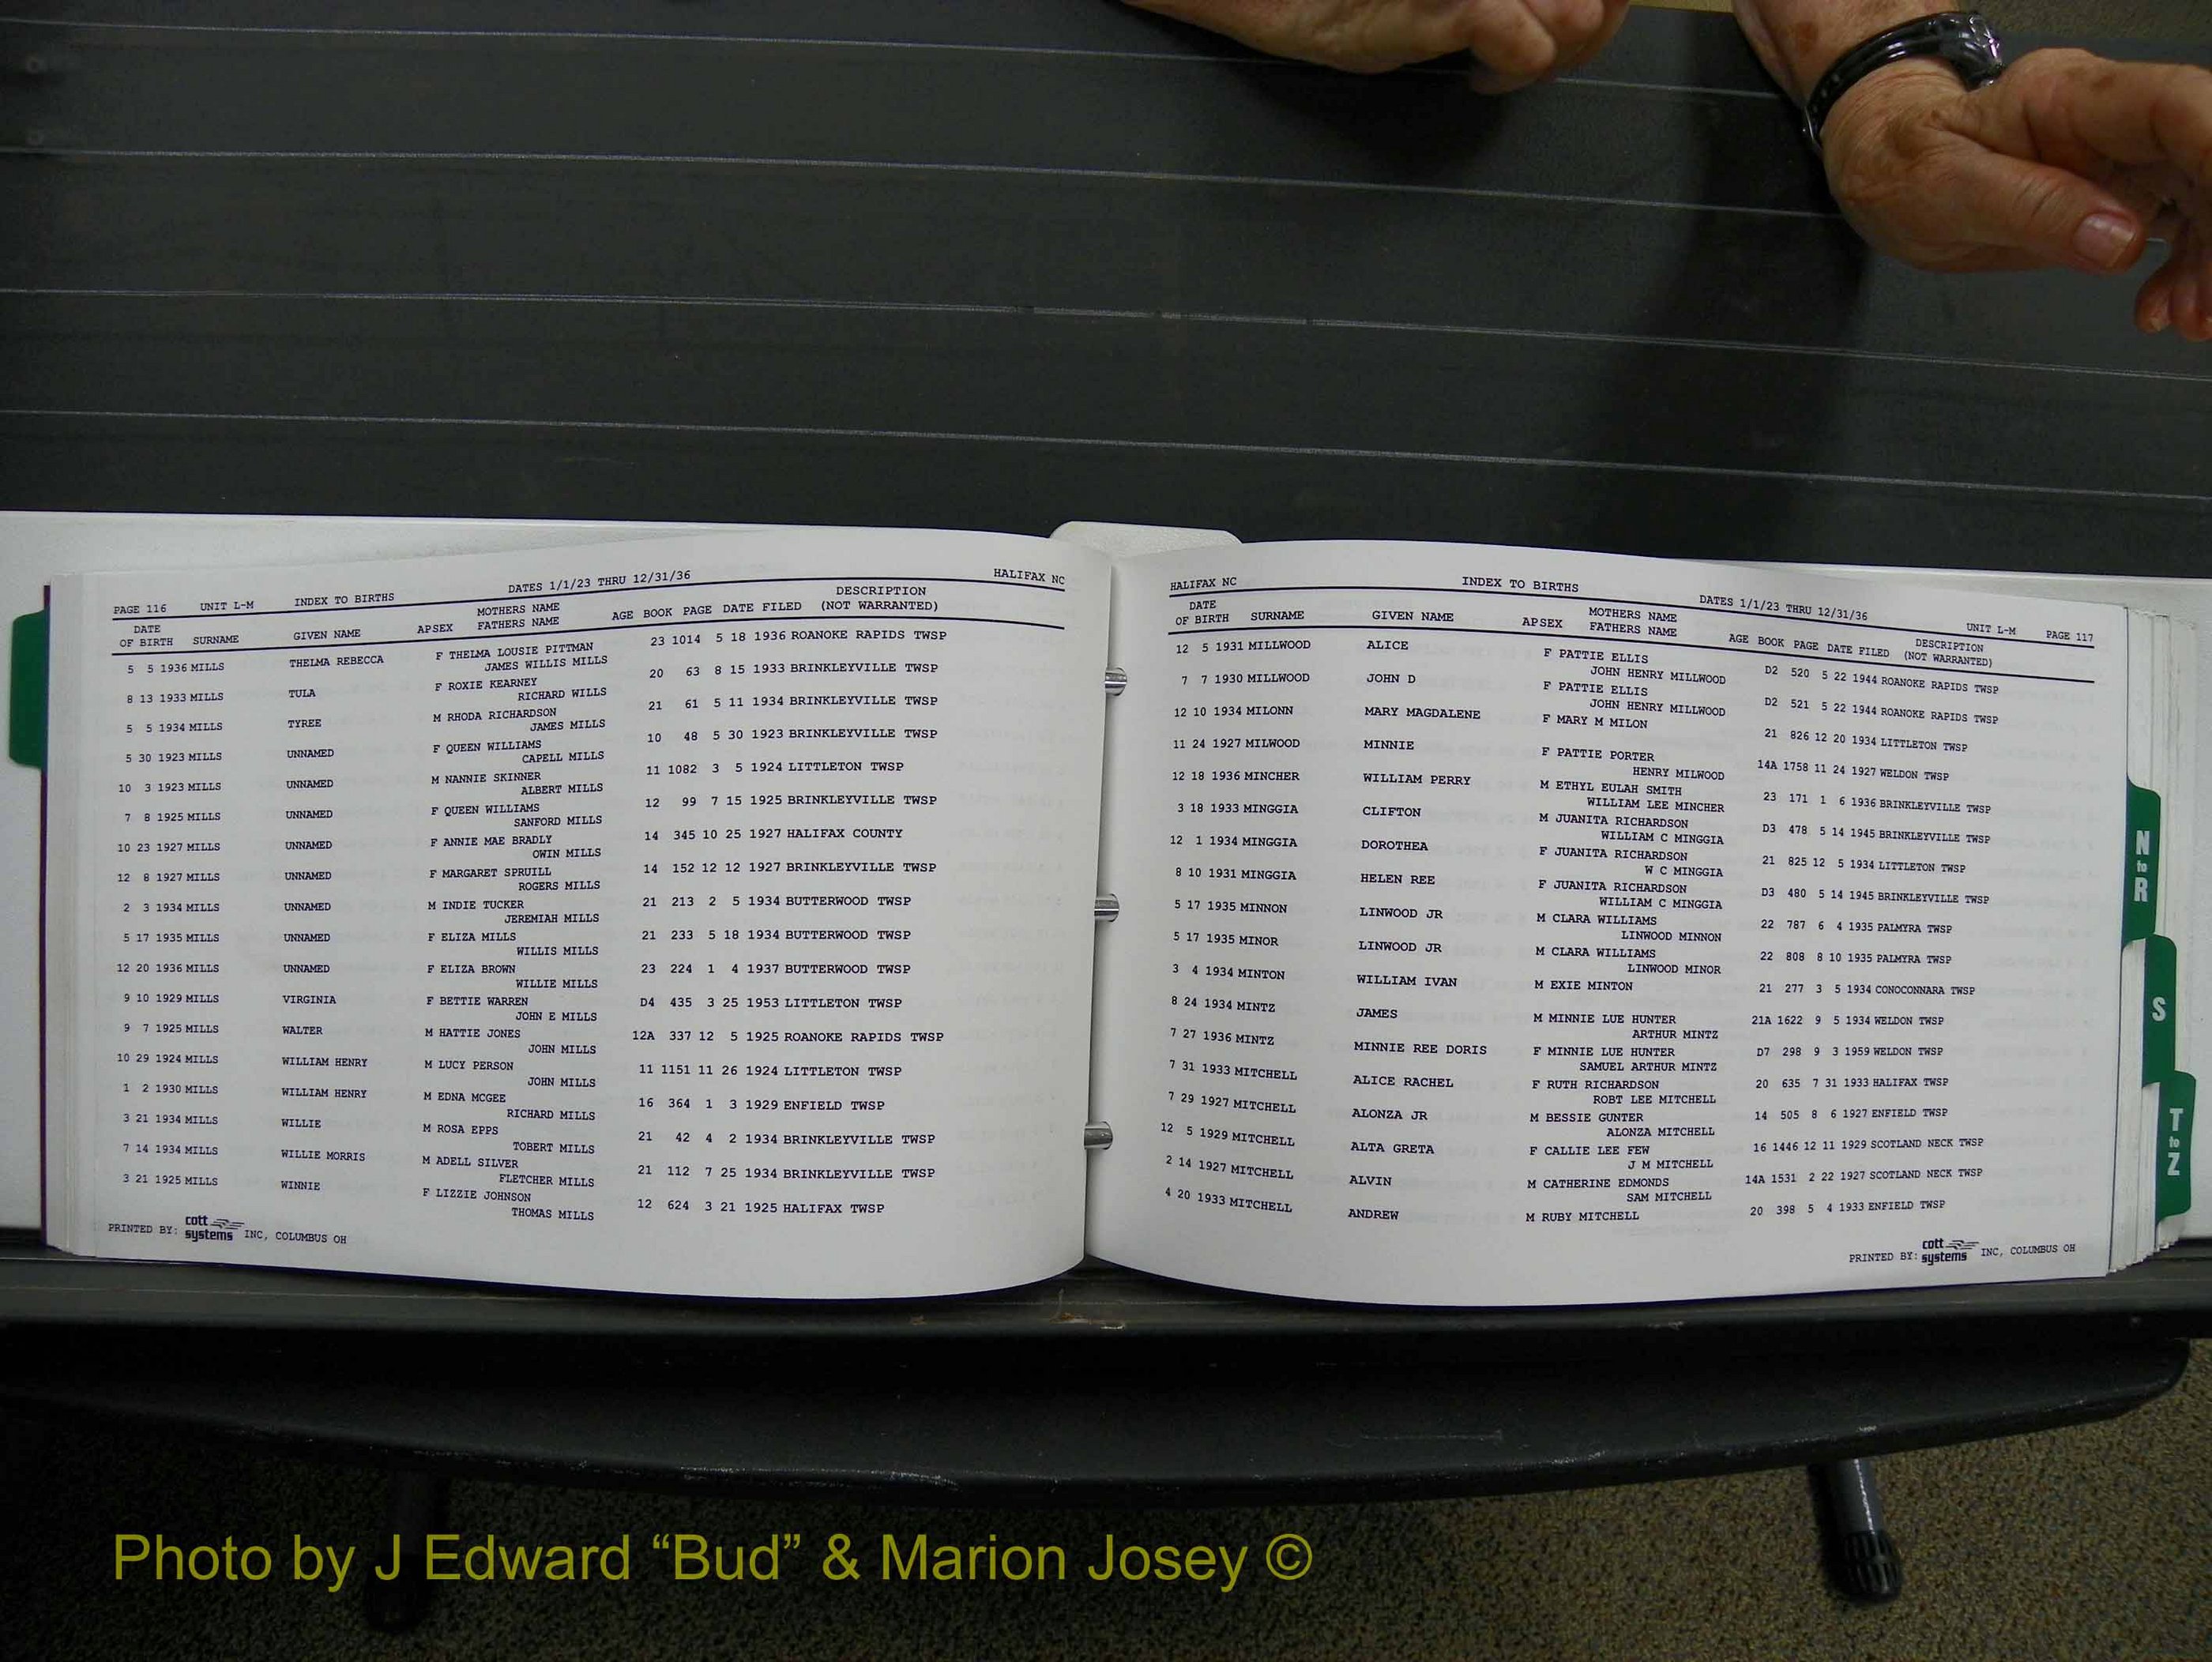 PAGE 116 UNIT L-M INDEX TO BIRTHS DATES 1/1/23 THRU 12/31/36 HALIFAX NC
DATE OF BIRTH SURNAME GIVEN NAME APSEX MOTHERS NAME FATHERS NAME AGE BOOK PAGE DATE FILED DESCRIPTION (NOT WARRANTED)
5 5 1936 MILLS THELMA REBECCA F THELMA LOUSIE PITTMAN 23 1014 5 18 1936 ROANOKE RAPIDS TWSP
JAMES WILLIS MILLS
8 13 1933 MILLS TULA F ROXIE KEARNEY 20 63 8 15 1933 BRINKLEYVILLE TWSP
RICHARD WILLS
5 5 1934 MILLS TYREE M RHODA RICHARDSON 21 61 5 11 1934 BRINKLEYVILLE TWSP
JAMES MILLS
5 30 1923 MILLS UNNAMED F QUEEN WILLIAMS 10 48 5 30 1923 BRINKLEYVILLE TWSP
CAPELL MILLS
10 3 1923 MILLS UNNAMED M NANNIE SKINNER 11 1082 3 5 1924 LITTLETON TWSP
ALBERT MILLS
7 8 1925 MILLS UNNAMED F QUEEN WILLIAMS 12 99 7 15 1925 BRINKLEYVILLE TWSP
SANFORD MILLS
10 23 1927 MILLS UNNAMED F ANNIE MAE BRADLY 14 345 10 25 1927 HALIFAX COUNTY
OWIN MILLS
12 8 1927 MILLS UNNAMED F MARGARET SPRUILL 14 152 12 12 1927 BRINKLEYVILLE TWSP
ROGERS MILLS
2 3 1934 MILLS UNNAMED M INDIE TUCKER 21 213 2 5 1934 BUTTERWOOD TWSP
JEREMIAH MILLS
5 17 1935 MILLS UNNAMED F ELIZA MILLS 21 233 5 18 1934 BUTTERWOOD TWSP
WILLIS MILLS
12 20 1936 MILLS UNNAMED F ELIZA BROWN 23 224 1 4 1937 BUTTERWOOD TWSP
WILLIE MILLS
9 10 1929 MILLS VIRGINIA F BETTIE WARREN D4 435 3 25 1953 LITTLETON TWSP
JOHN E MILLS
9 7 1925 MILLS WALTER M HATTIE JONES 12A 337 12 5 1925 ROANOKE RAPIDS TWSP
JOHN MILLS
10 29 1924 MILLS WILLIAM HENRY M LUCY PERSON 11 1151 11 26 1924 LITTLETON TWSP
JOHN MILLS
1 2 1930 MILLS WILLIAM HENRY M EDNA MCGEE 16 364 1 3 1929 ENFIELD TWSP
RICHARD MILLS
3 21 1934 MILLS WILLIE M ROSA EPPS 21 42 4 2 1934 BRINKLEYVILLE TWSP
TOBERT MILLS
7 14 1934 MILLS WILLIE MORRIS M ADELL SILVER 21 112 7 25 1934 BRINKLEYVILLE TWSP
FLETCHER MILLS
3 21 1925 MILLS WINNIE F LIZZIE JOHNSON 12 624 3 21 1925 HALIFAX TWSP
THOMAS MILLS
PRINTED BY: cott systems INC, COLUMBUS OH
HALIFAX NC INDEX TO BIRTHS DATES 1/1/23 THRU 12/31/36 UNIT L-M PAGE 117
DATE OF BIRTH SURNAME GIVEN NAME APSEX MOTHERS NAME FATHERS NAME AGE BOOK PAGE DATE FILED DESCRIPTION (NOT WARRANTED)
12 5 1931 MILLWOOD ALICE F PATTIE ELLIS D2 520 5 22 1944 ROANOKE RAPIDS TWSP
JOHN HENRY MILLWOOD
7 7 1930 MILLWOOD JOHN D F PATTIE ELLIS D2 521 5 22 1944 ROANOKE RAPIDS TWSP
JOHN HENRY MILLWOOD
12 10 1934 MILONN MARY MAGDALENE F MARY M MILON 21 826 12 20 1934 LITTLETON TWSP
11 24 1927 MILWOOD MINNIE F PATTIE PORTER 14A 1758 11 24 1927 WELDON TWSP
HENRY MILWOOD
12 18 1936 MINCHER WILLIAM PERRY M ETHYL EULAH SMITH 23 171 1 6 1936 BRINKLEYVILLE TWSP
WILLIAM LEE MINCHER
3 18 1933 MINGGIA CLIFTON M JUANITA RICHARDSON D3 478 5 14 1945 BRINKLEYVILLE TWSP
WILLIAM C MINGGIA
12 1 1934 MINGGIA DOROTHEA F JUANITA RICHARDSON 21 825 12 5 1934 LITTLETON TWSP
W C MINGGIA
8 10 1931 MINGGIA HELEN REE F JUANITA RICHARDSON D3 480 5 14 1945 BRINKLEYVILLE TWSP
WILLIAM C MINGGIA
5 17 1935 MINNON LINWOOD JR M CLARA WILLIAMS 22 787 6 4 1935 PALMYRA TWSP
LINWOOD MINNON
5 17 1935 MINOR LINWOOD JR M CLARA WILLIAMS 22 808 8 10 1935 PALMYRA TWSP
LINWOOD MINOR
3 4 1934 MINTON WILLIAM IVAN M EXIE MINTON 21 277 3 5 1934 CONOCONNARA TWSP
8 24 1934 MINTZ JAMES M MINNIE LUE HUNTER 21A 1622 9 5 1934 WELDON TWSP
ARTHUR MINTZ
7 27 1936 MINTZ MINNIE REE DORIS F MINNIE LUE HUNTER D7 298 9 3 1959 WELDON TWSP
SAMUEL ARTHUR MINTZ
7 31 1933 MITCHELL ALICE RACHEL F RUTH RICHARDSON 20 635 7 31 1933 HALIFAX TWSP
ROBT LEE MITCHELL
7 29 1927 MITCHELL ALONZA JR M BESSIE GUNTER 14 505 8 6 1927 ENFIELD TWSP
ALONZA MITCHELL
12 5 1929 MITCHELL ALTA GRETA F CALLIE LEE FEW 16 1446 12 11 1929 SCOTLAND NECK TWSP
J M MITCHELL
2 14 1927 MITCHELL ALVIN M CATHERINE EDMONDS 14A 1531 2 22 1927 SCOTLAND NECK TWSP
SAM MITCHELL
4 20 1933 MITCHELL ANDREW M RUBY MITCHELL 20 398 5 4 1933 ENFIELD TWSP
PRINTED BY: cott systems INC, COLUMBUS OH
N to R
S
T to Z
Photo by J Edward “Bud” & Marion Josey ©